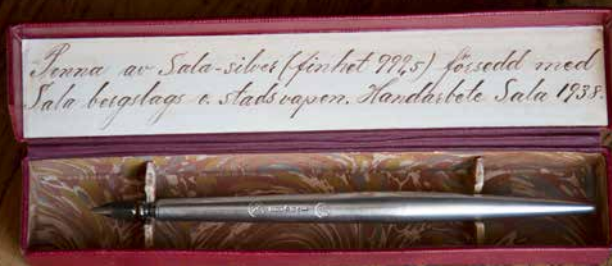 Penna av Sala-silver (finhet 999,5) försedd med
Sala bergslags o. stadsvapen. Handarbete Sala 1938.